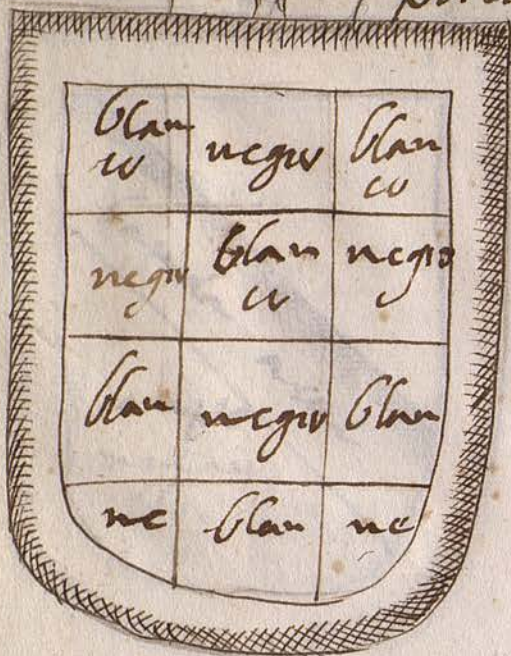 blan negro blan
co co
negro blan negro
co
blan negro blan
ne blan ne